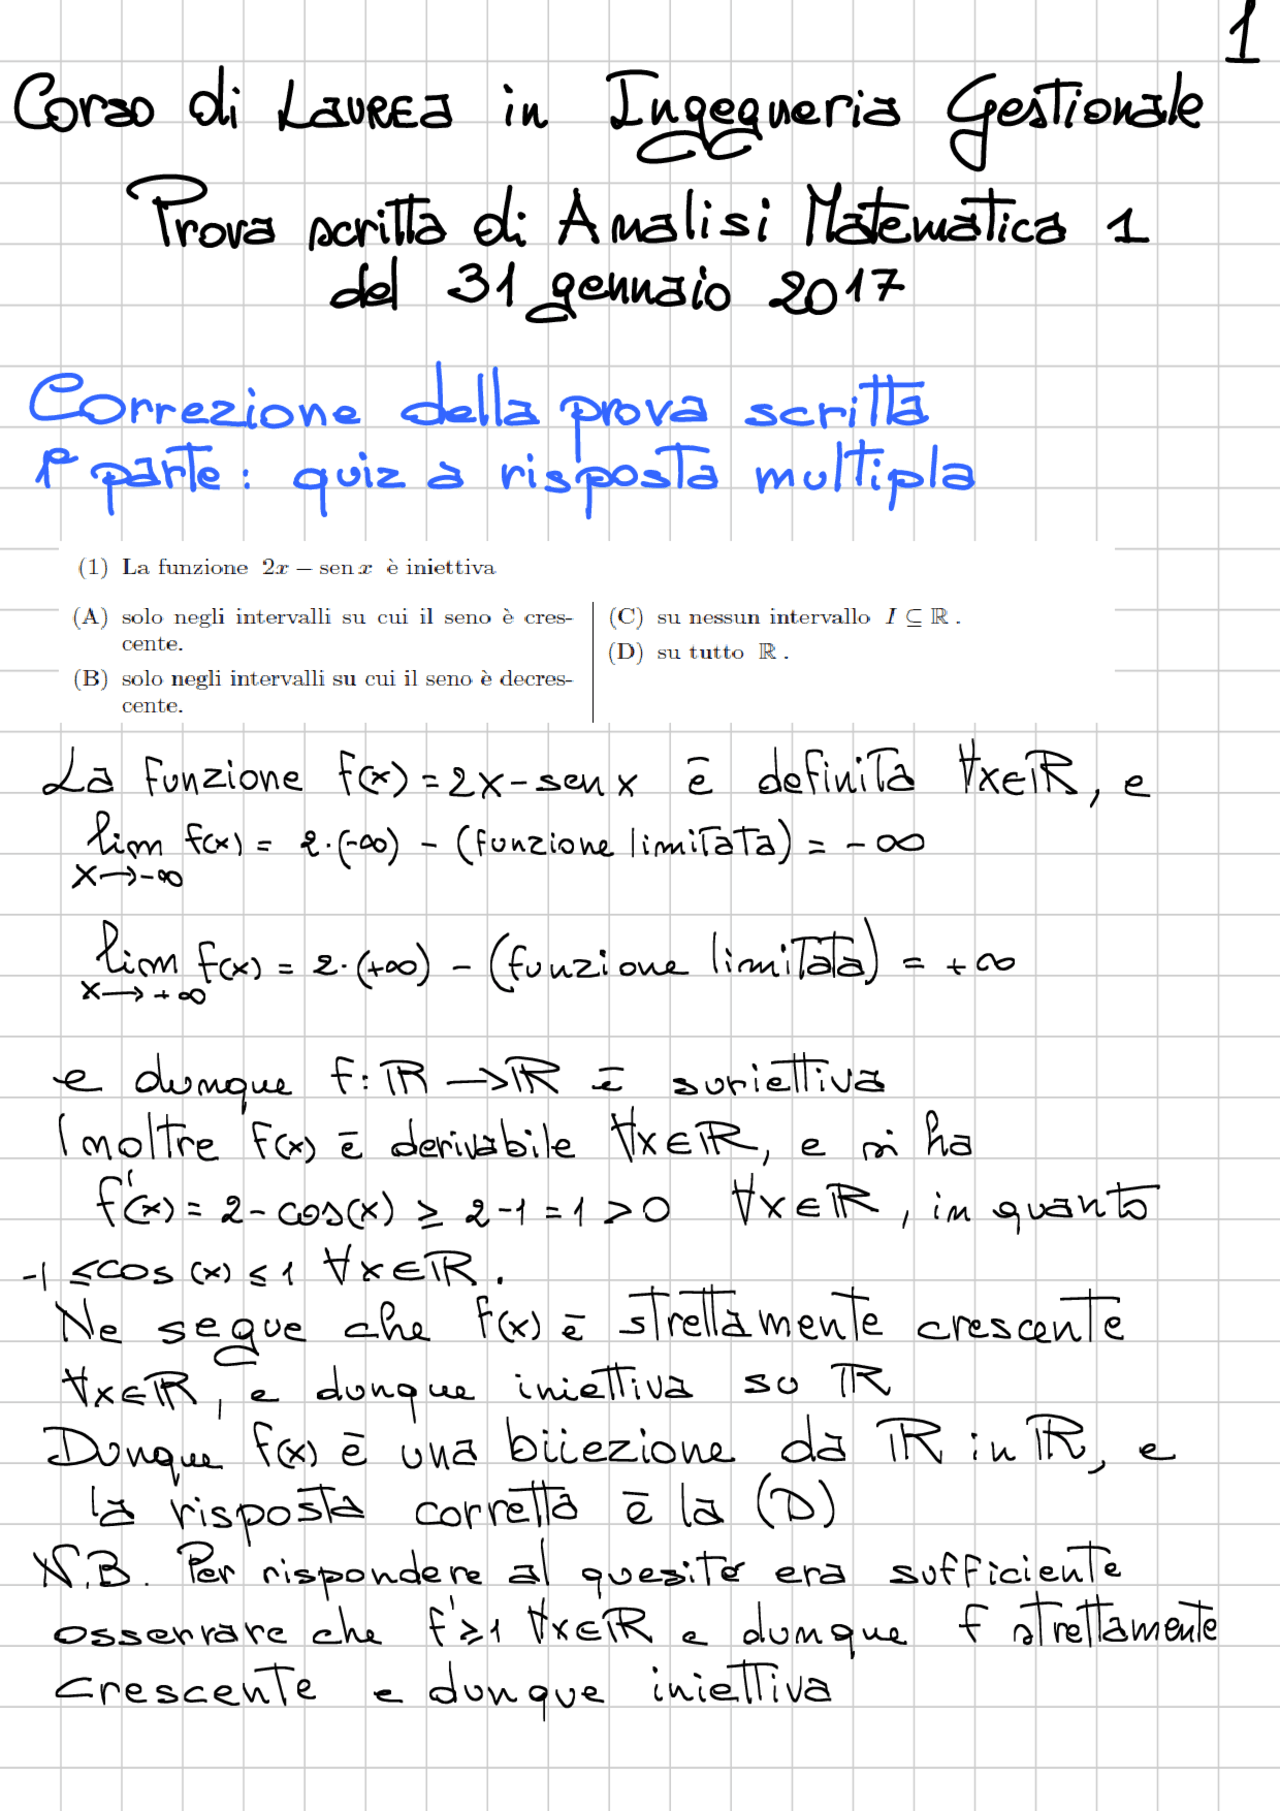 1
Corso di Laurea in Ingegneria Gestionale
Prova scritta di Analisi Matematica 1
del 31 gennaio 2017
Correzione della prova scritta
1ª parte: quiz a risposta multipla
(1) La funzione 2x − sen x è iniettiva
(A) solo negli intervalli su cui il seno è cres-
cente.
(B) solo negli intervalli su cui il seno è decres-
cente.
(C) su nessun intervallo I ⊆ ℝ .
(D) su tutto ℝ .
La funzione f(x) = 2x - sen x è definita ∀x∈ℝ, e
lim f(x) = 2·(-∞) - (funzione limitata) = -∞
x→-∞
lim f(x) = 2·(+∞) - (funzione limitata) = +∞
x→+∞
e dunque f: ℝ → ℝ è suriettiva
Inoltre f(x) è derivabile ∀x∈ℝ, e si ha
f'(x) = 2 - cos(x) ≥ 2-1 = 1 > 0 ∀x∈ℝ, in quanto
-1 ≤ cos(x) ≤ 1 ∀x∈ℝ.
Ne segue che f(x) è strettamente crescente
∀x∈ℝ, e dunque iniettiva su ℝ
Dunque f(x) è una biiezione da ℝ in ℝ, e
la risposta corretta è la (D)
N.B. Per rispondere al quesito era sufficiente
osservare che f'≥1 ∀x∈ℝ e dunque f strettamente
crescente e dunque iniettiva